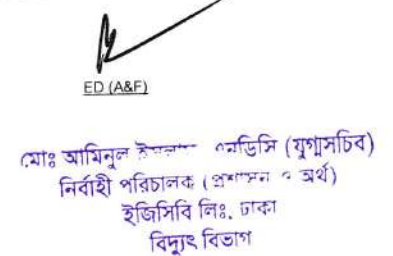 ED (A&F)
মোঃ আমিনুল ইসলাম এনডিসি (যুগ্মসচিব)
নির্বাহী পরিচালক (প্রশাসন ও অর্থ)
ইজিসিবি লিঃ, ঢাকা
বিদ্যুৎ বিভাগ